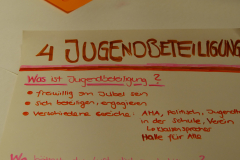 4 JUGENDBETEILIGUN
Was ist Jugendbeteiligung ?
freiwillig am
sich beteiligen, engagieren
verschiedene : AHA, Politisch, Jugendh
in der Schule, Verein
Klassensprecher
Halle für Alle